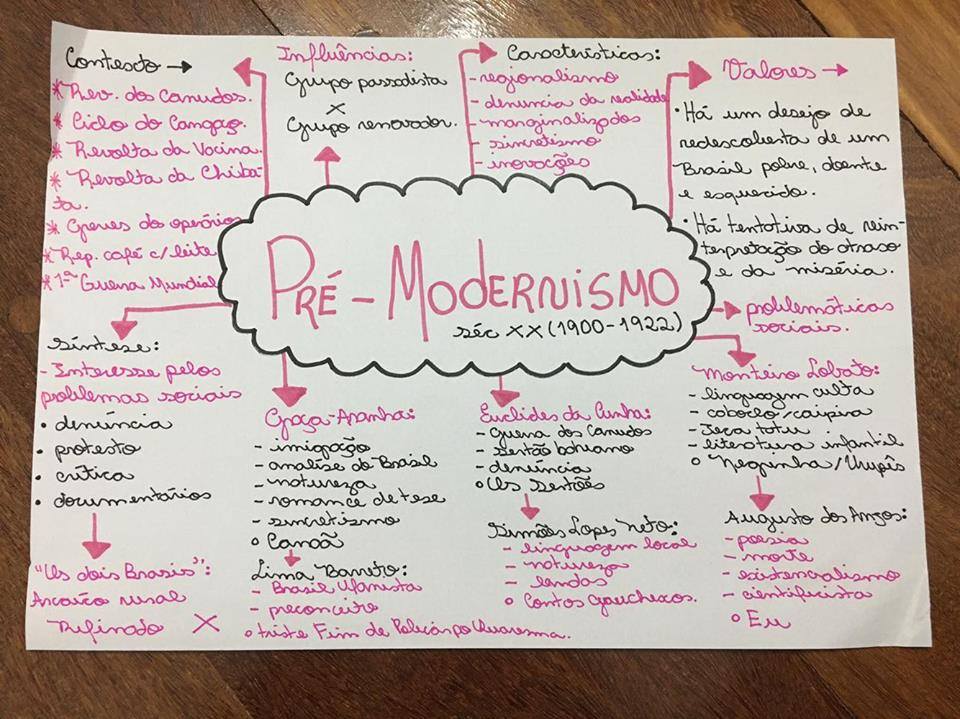 Contexto →
* Rev. dos Canudos.
* Ciclo do Cangaço.
* Revolta da Vacina.
* Revolta da Chiba-
ta.
* Greves do operários
* Rep. café c/ leite
* 1ª Guerra Mundial
Influências:
Grupo passadista
X
Grupo renovador.
Características:
- regionalismo
- denuncia da realidade
- marginalizados
- sincretismo
- inovações
Valores →
• Há um desejo de
redescoberta de um
Brasil pobre, doente
e esquecido.
• Há tentativa de rein-
terpretação do atraso
e da miséria.
PRÉ-MODERNISMO
séc XX (1900-1922)
problemáticas
sociais.
Síntese:
- Interesse pelos
problemas sociais
• denúncia
• protesto
• crítica
• documentários
"Os dois Brasis":
Arcaico rural
Refinado X
Graça-Aranha:
- imigração
- analise do Brasil
- natureza
- romance de tese
- sincretismo
o Canaã
Lima Barreto:
- Brasil Ufanista
- preconceito
o triste Fim de Policarpo Quaresma.
Euclides da Cunha:
- Guerra dos Canudos
- Sertão bahiano
- denúncia
o Os Sertões
Simões Lopes Neto:
- linguagem local
- natureza
- lendas
o Contos Gauchexos.
Monteiro Lobato:
- linguagem culta
- caboclo/caipira
- Jeca tatu
- literatura infantil
o Neginha/Urupês
Augusto dos Anjos:
- poesia
- morte
- existencialismo
- cientificista
o Eu